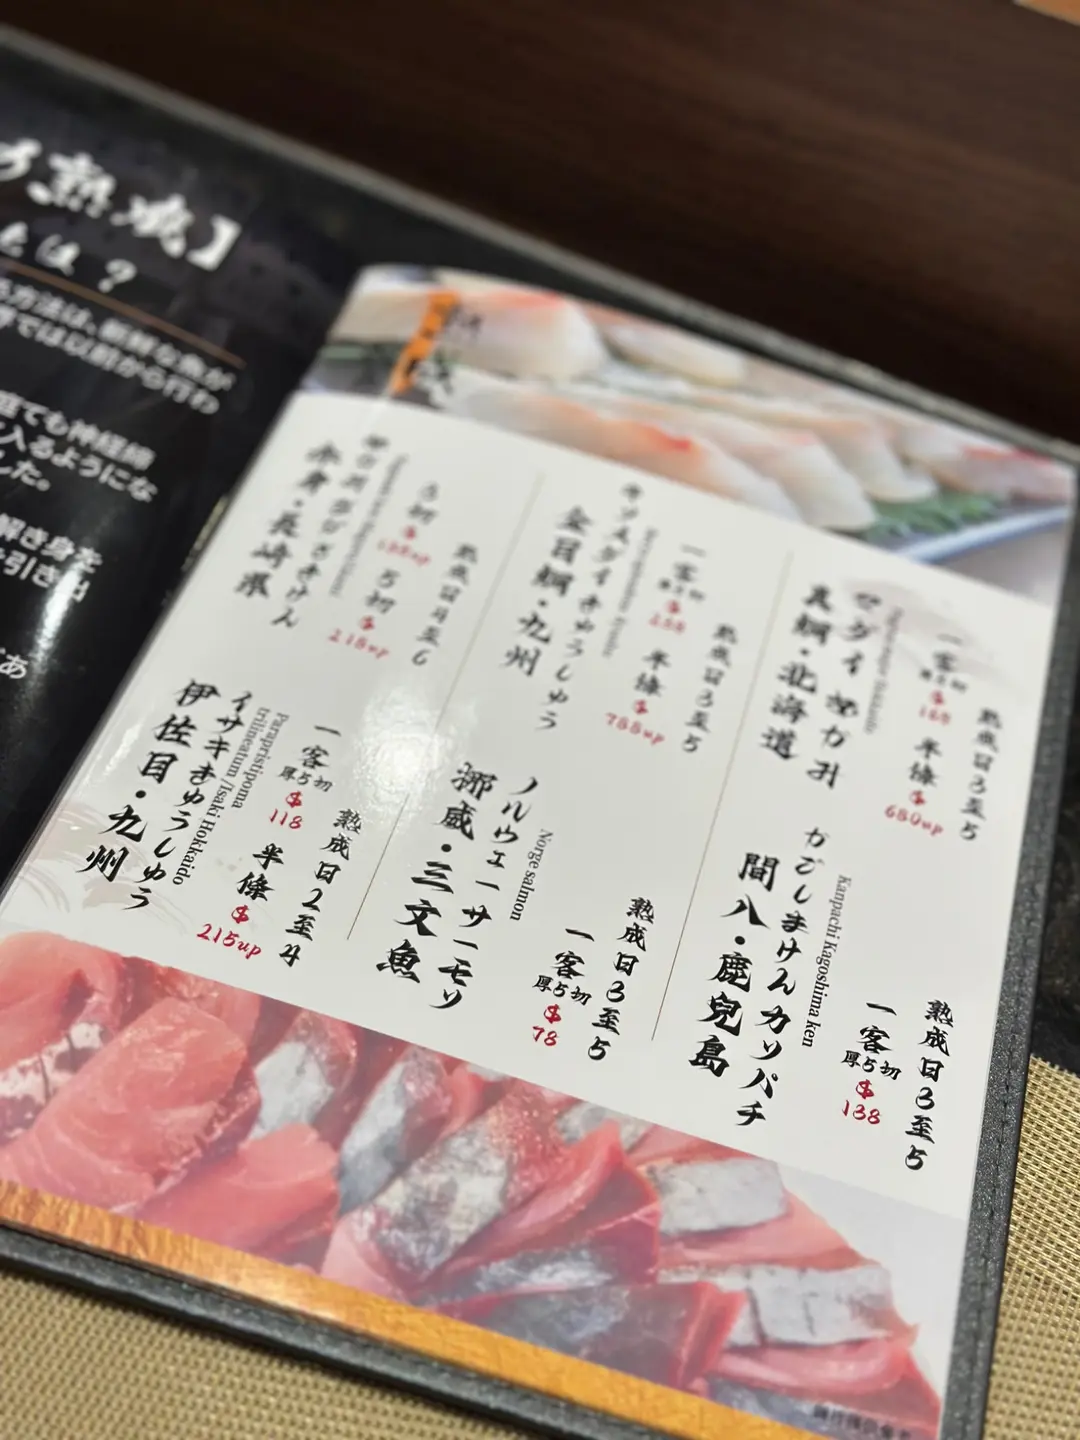 熟成】
とは？
方法は、新鮮な魚が
では以前から行わ
庭でも神経締
入るようにな
した。
解き身を
引き出
熟成
熟成日3至5
一客
厚5切
$
168
半條
$
680up
マダイ ほっかい
真鯛・北海道
熟成日3至5
一客
厚5切
$
半條
$
788up
キンメダイ きゅうしゅう
金目鯛・九州
5切
$
218up
ながさきけん
赤身・長崎県
熟成日3至5
一客
厚5切
$
138
Kanpachi Kagoshima ken
かごしまけんカンパチ
間八・鹿兒島
熟成日3至5
一客
厚5切
$
78
Norge salmon
ノルウェーサーモン
挪威・三文魚
熟成日2至4
一客
厚5切
$
118
半條
$
215up
Parapristipoma
trilineatum/Isaki Hokkaido
イサキきゅうしゅう
伊佐目・九州